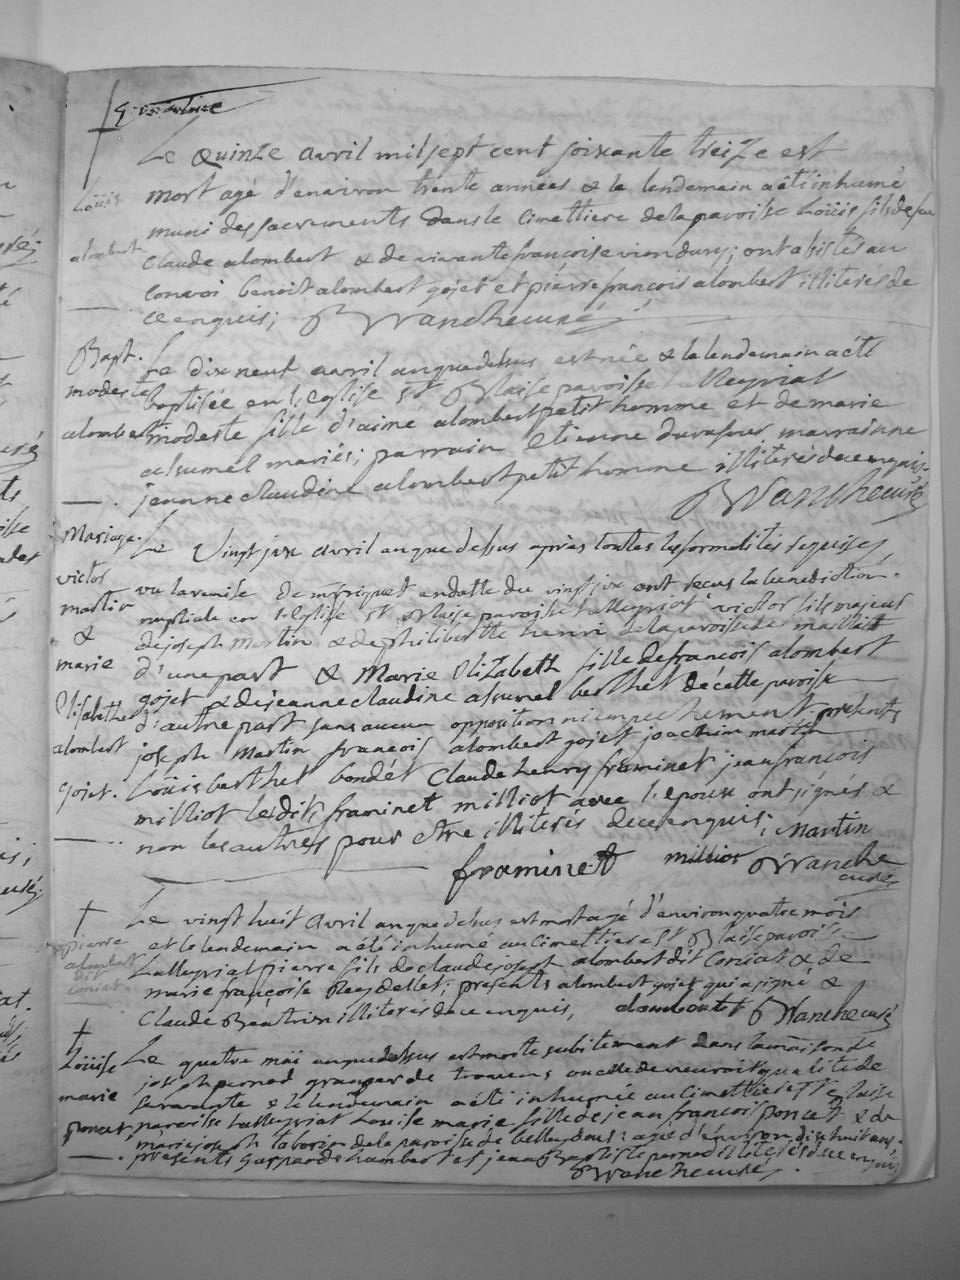 Le quinze avril mil sept cent soixante treize est
Loüis mort agé d'environ trente années & le lendemain a été inhumé
muni des sacrements dans le cimettiere de la paroisse Loüis fils de feu
alombert Claude alombert & de vivante françoise viondury; ont assistés au
convoi benoit alombert gojet et pierre françois alombert illiterés de
ce enquis; Blanche curé
Bapt. Le dix neuf avril an que dessus est née & le lendemain a été
modeste baptisée en l'eglise St Blaise paroisse Lalleyriat
alombert modeste fille d'aimé alombert petit homme et de marie
assumel mariés; parrain Etienne marrainne
jeanne claudine alombert petit homme illiterés de ce enquis.
Blanche curé
Mariage. Le Vingt six avril an que dessus après toutes les formalités requises,
victor vu la remise en datte du vingt six ont reçus la benediction
martin nuptiale en l'eglise St Blaise paroisse Lalleyriat victor fils majeur
& de joseph Martin & de philiberthe henri de la paroisse de maillat
marie d'une part & Marie Elizabeth fille de françois alombert
Elisabethe gojet & de jeanne claudine assumel berthet de cette paroisse
d'autre part sans aucun opposition ni empechement présents
alombert joseph Martin françois alombert gojet joachim martin
gojet. Loüis berthet bondét Claude henry framinet jean françois
milliot lesdits framinet milliot avec l'epoux ont signés &
non les autres pour etre illiterés de ce enquis; Martin
framinet milliot Blanche
curé
Le vingt huit avril an que dessus est mort agé d'environ quatre mois
pierre et le lendemain a été inhumé au cimettiere St Blaise paroisse
alombert Lalleyriat pierre fils de claude joseph alombert dit Coniat & de
coniat. marie françoise Reydellet; presents alombert gojet qui a signé &
Claude Beatrix illiterés de ce enquis, alombert Blanche curé
Loüise Le quatre maï an que dessus est morte subitement dans la maison de
joseph pernod granger de ou elle demeuroit qualité de
marie servante & le lendemain a été inhumée au cimettiere St Blaise
poncet paroisse Lalleyriat Louise marie fille de jean françois poncet & de
marie joseph laborier de la paroisse de belleydoux: agée d'environ dix huit ans.
présents gaspard humbert et jean Baptiste pernod illiterés de ce enquis
Blanche curé